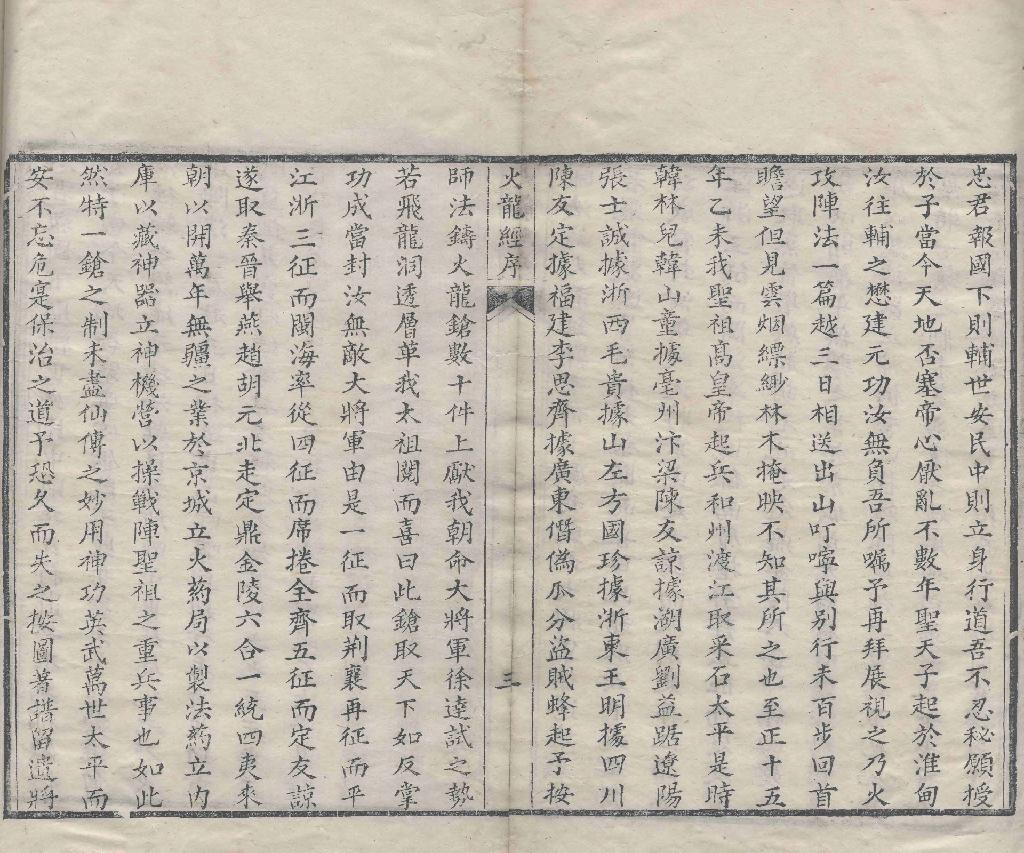 忠君報國下則輔世安民中則立身行道吾不忍秘願授
於子當今天地否塞帝心厭亂不數年聖天子起於淮甸
汝往輔之懋建元功汝無負吾所囑予再拜展視之乃火
攻陣法一篇越三日相送出山叮嚀與別行未百步回首
瞻望但見雲烟縹緲林木掩映不知其所之也至正十五
年乙未我聖祖高皇帝起兵和州渡江取采石太平是時
韓林兒韓山童據亳州汴梁陳友諒據湖廣劉益踞遼陽
張士誠據浙西毛貴據山左方國珍據浙東王明據四川
陳友定據福建李思齊據廣東僭偽瓜分盜賊蜂起予按
火龍經序
三
師法鑄火龍鎗數十件上獻我朝命大將軍徐達試之勢
若飛龍洞透層革我太祖閱而喜曰此鎗取天下如反掌
功成當封汝無敵大將軍由是一征而取荆襄再征而平
江浙三征而閩海率從四征而席捲全齊五征而定友諒
遂取秦晉舉燕趙胡元北走定鼎金陵六合一統四夷來
朝以開萬年無疆之業於京城立火葯局以製法葯立内
庫以藏神器立神機營以操戰陣聖祖之重兵事也如此
然特一鎗之制未盡仙傳之妙用神功英武萬世太平而
安不忘危寔保治之道予恐久而失之按圖著譜留遺將